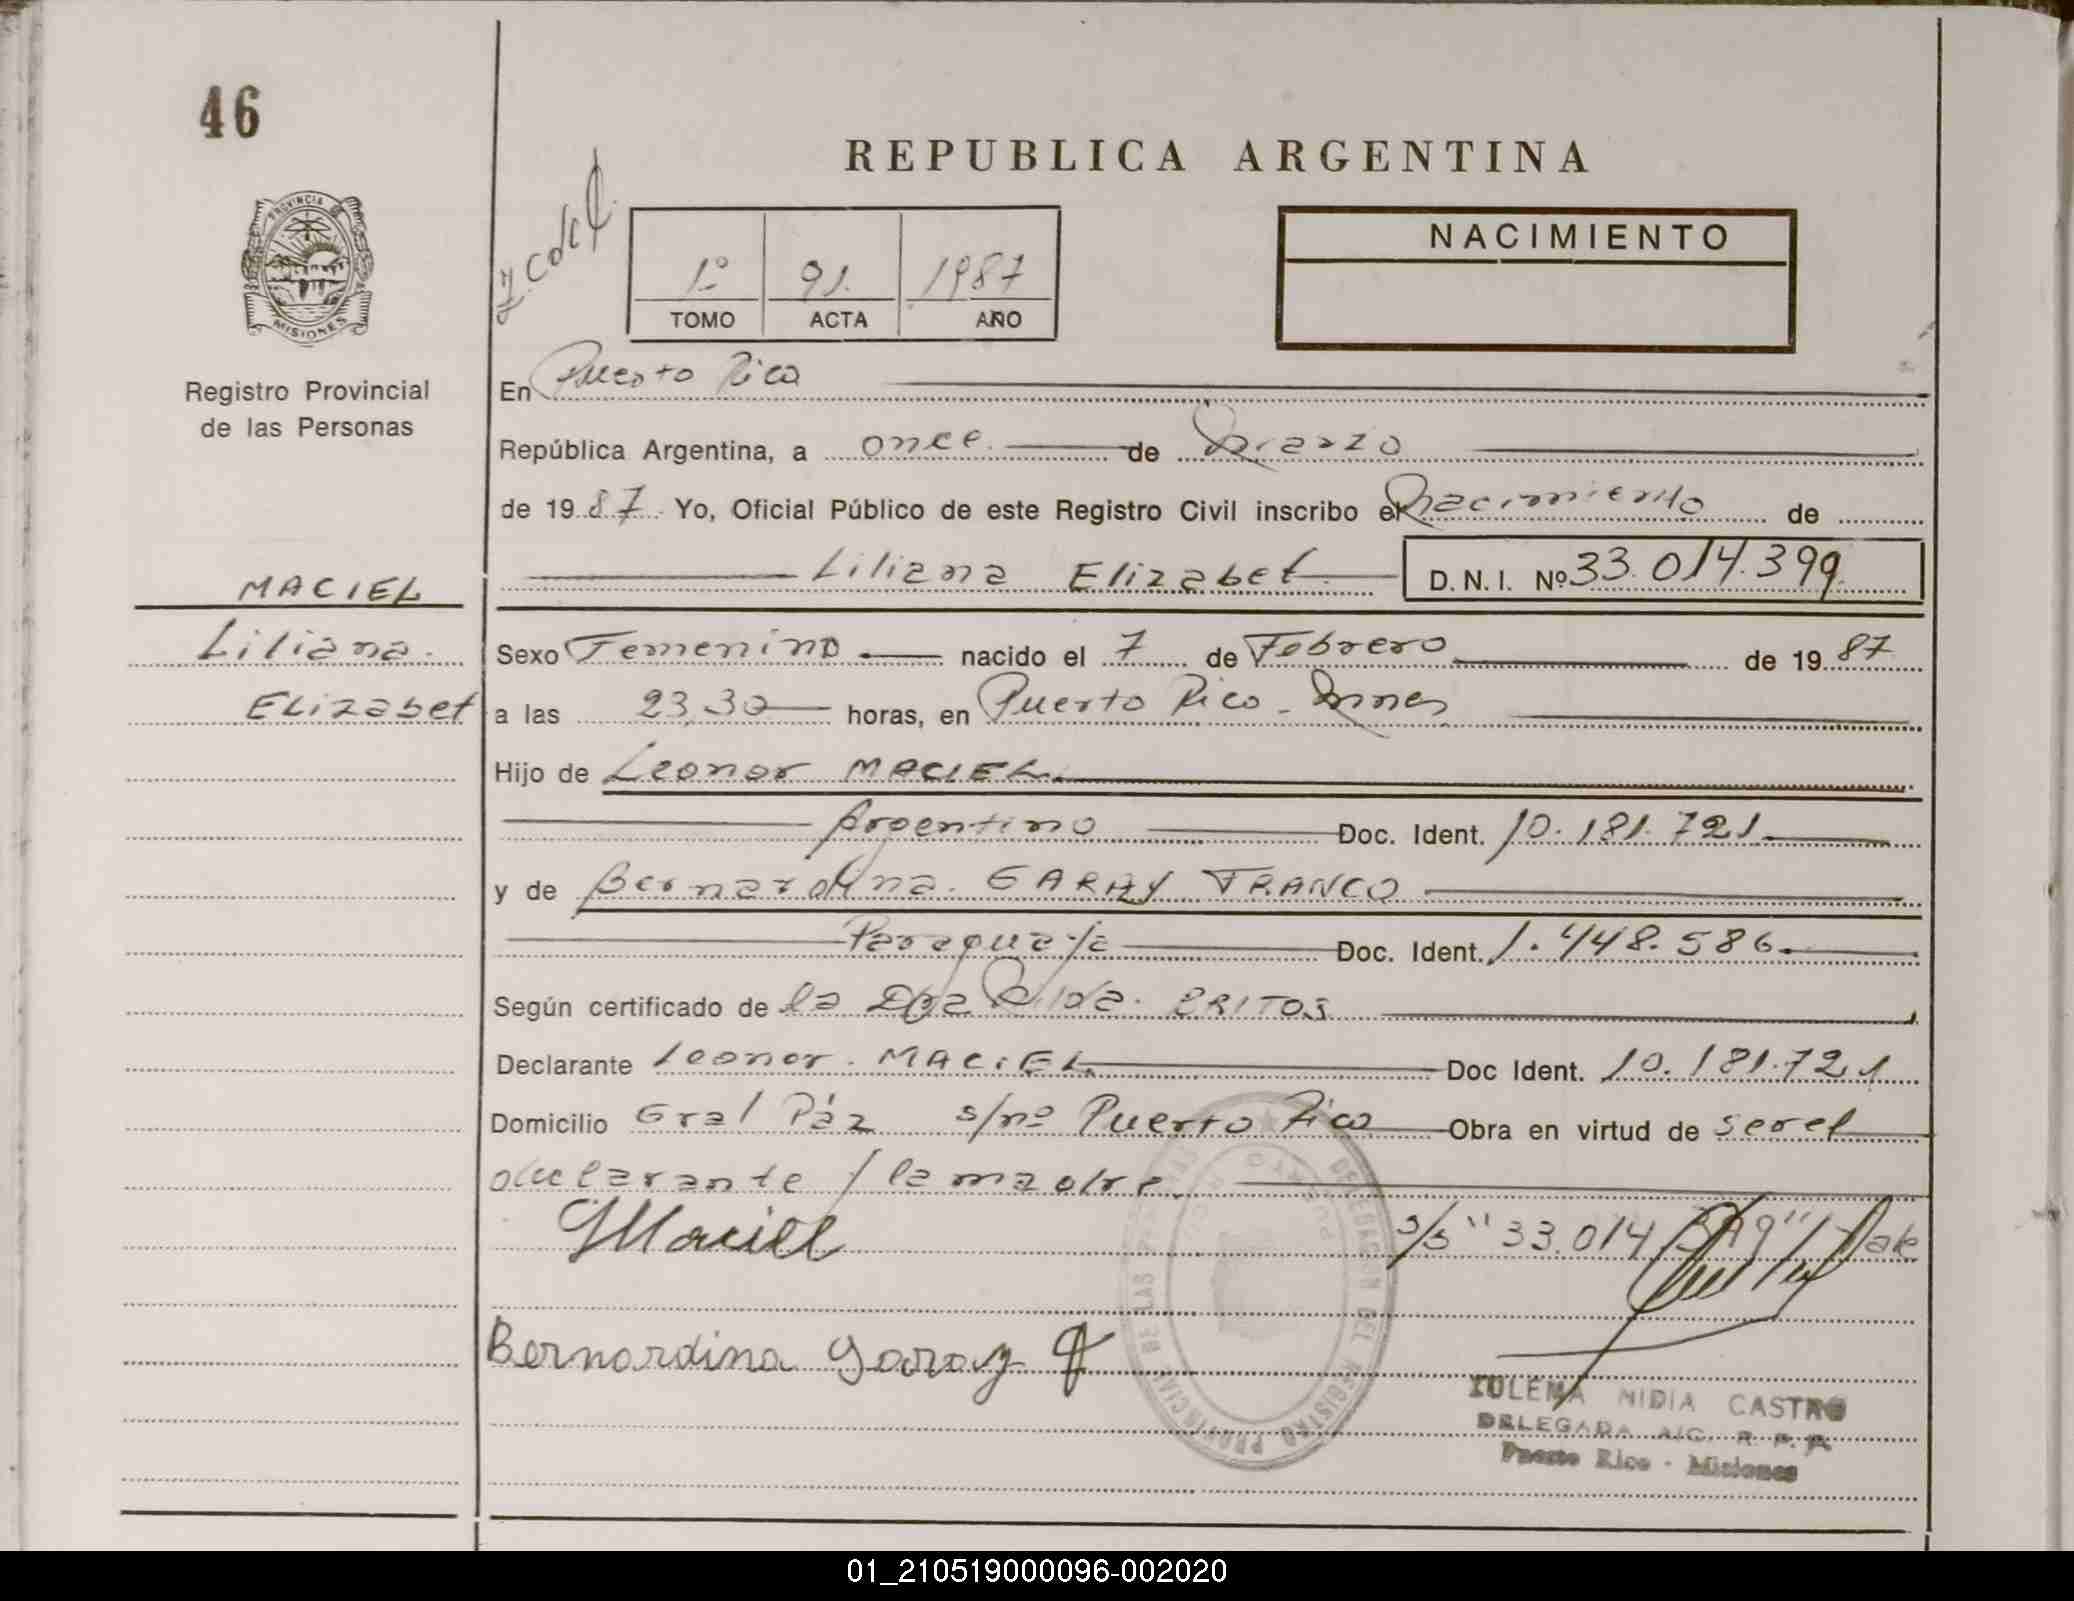 46
REPUBLICA ARGENTINA
PROVINCIA DE
MISIONES
NACIMIENTO
1º 91. 1987
TOMO ACTA AÑO
Registro Provincial
de las Personas
En Puerto Rico
República Argentina, a once de Marzo
de 1987 Yo, Oficial Público de este Registro Civil inscribo el Nacimiento de
Liliana Elizabet D.N.I. Nº 33.014.399
MACIEL
Liliana
Elizabet
Sexo Femenino nacido el 7 de Febrero de 1987
a las 23,30 horas, en Puerto Rico - Mnes
Hijo de Leonor MACIEL
Argentino Doc. Ident. 10.181.721
y de Bernardina GARAY FRANCO
Paraguaya Doc. Ident. 1.448.586
Según certificado de la Dra BRITOS
Declarante Leonor MACIEL Doc Ident. 10.181.721
Domicilio Gral Páz s/nº Puerto Rico Obra en virtud de ser el
declarante / la madre.
Maciel s/b "33.014 Vale
Bernardina Garay
DELEGACION DEL REGISTRO PROVINCIAL DE LAS PERSONAS
PUERTO RICO
ZULEMA NIDIA CASTRO
DELEGADA A/C. R. P. P.
Puerto Rico - Misiones
01_210519000096-002020